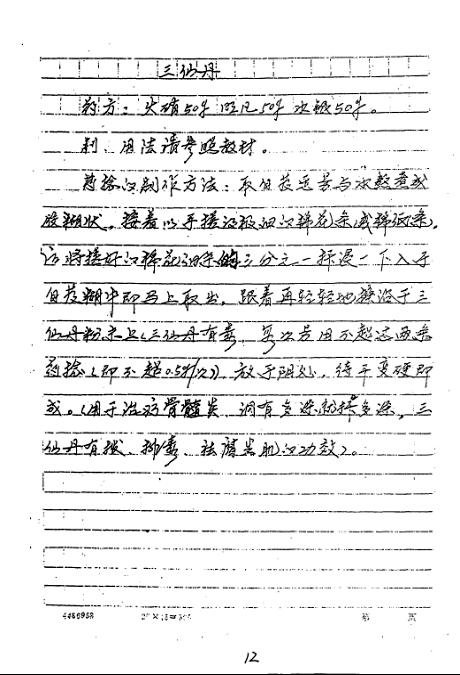 三仙丹
药方：火硝50g 明凡50g 水银50g。
制、用法请参照教材。
药捻的制作方法：取白芨适量与水熬煮成
胶糊状。接着以手搓的极细的棉花条或棉纸条，
将搓好的棉花细条的三分之一标浸一下入于
白芨糊中即马上取出，跟着再轻轻地擦沾于三
仙丹粉末上（三仙丹有毒，每次用不超过两条
药捻（即不超0.5g/次）），放于阴处，待干变硬即
成。（用于治疗骨髓炎，洞有多深就插多深，三
仙丹有拔、抑毒、祛腐生肌的功效）。
第 页
12